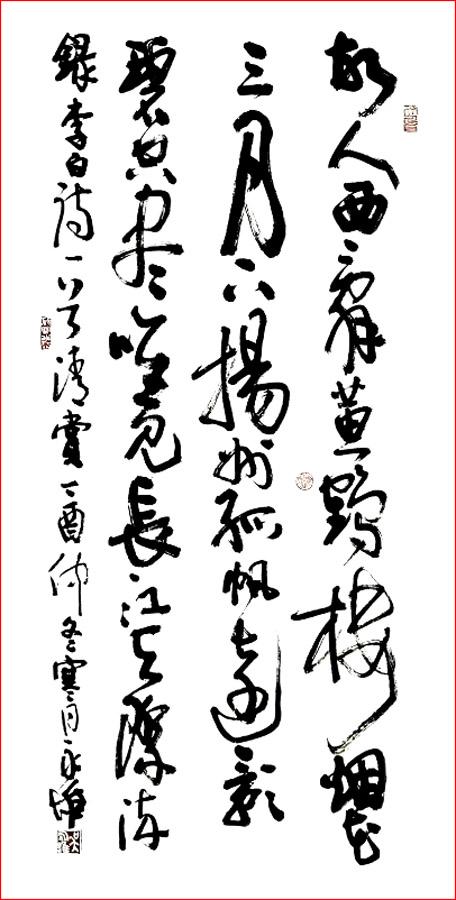 故人西辭黄鶴樓烟花
三月下揚州孤帆遠影
碧空盡唯見長江天際流
錄李白詩一首清賞丁酉仲冬寒月永